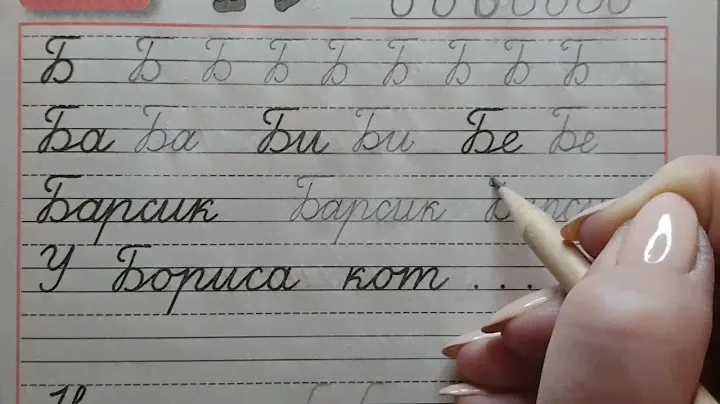 Б Б Б Б Б Б Б Б Б
Ба Ба Би Би Бе Бе
Барсик Барсик
У Бориса кот ...